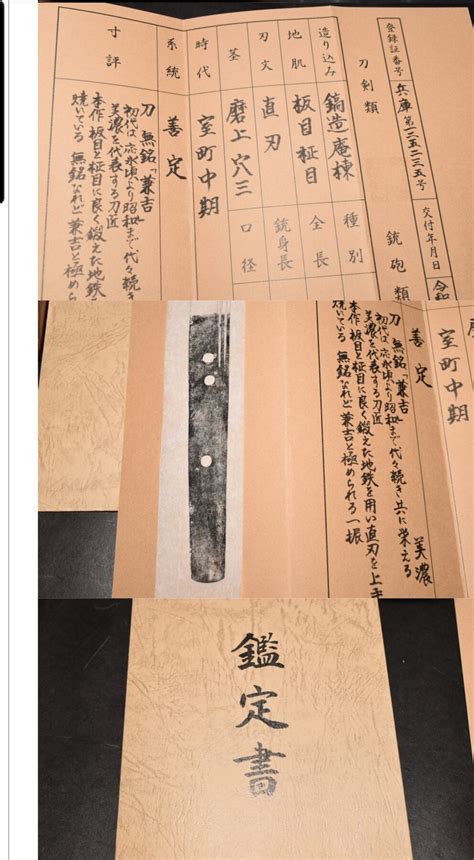 登録証番号 兵庫第一三五二三五号 交付年月日
刀剣類 銃砲類
造り込み 鎬造庵棟 種別
地肌 板目柾目 全長
刃文 直刃 銃身長
茎 磨上穴三 口径
時代 室町中期
系統 善定
寸評 刀 無銘「兼吉」
初代は応永頃より昭和まで代々続き
美濃を代表する刀匠
本作板目と柾目に良く鍛えた地鉄
焼いている 無銘なれど兼吉と極め
室町中期
善定 美濃
刀 無銘「兼吉」
初代は応永頃より昭和まで代々続き共に栄える
美濃を代表する刀匠
本作板目と柾目に良く鍛えた地鉄を用い直刃を上手
焼いている 無銘なれど兼吉と極められる一振
鑑定書